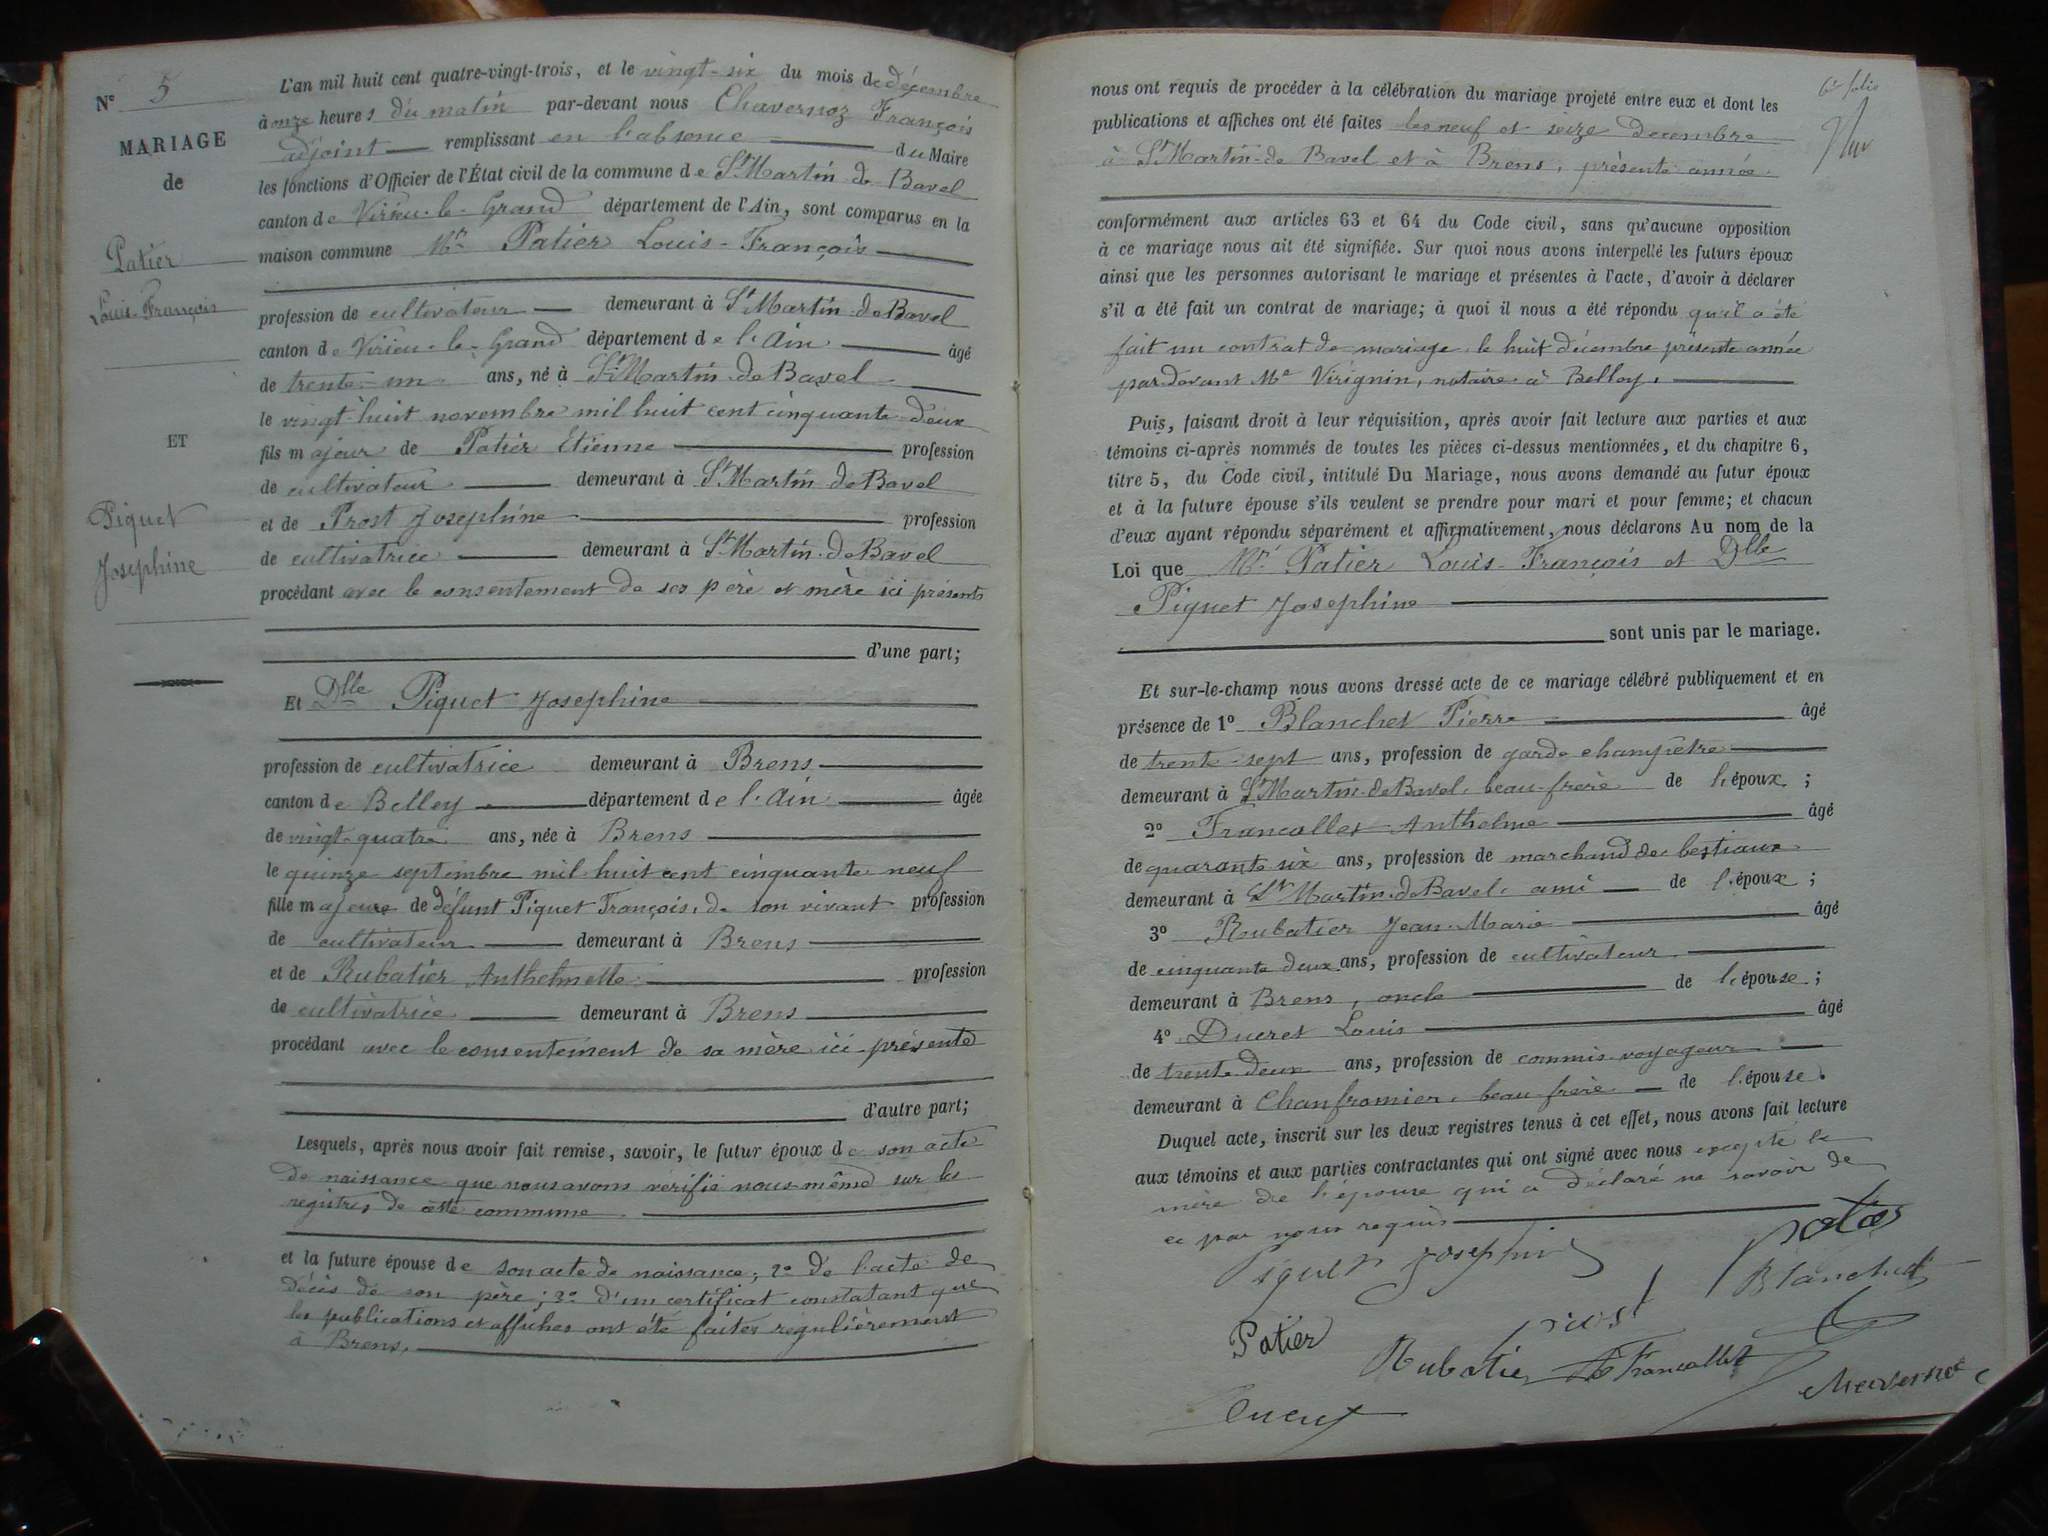 N° 5
MARIAGE
de
Patier
Louis-François
ET
Piquet
Josephine
L'an mil huit cent quatre-vingt-trois, et le vingt-six du mois de décembre
à onze heures du matin par-devant nous Chavernoz François
adjoint remplissant en l'absence du Maire
les fonctions d'Officier de l'État civil de la commune de St Martin de Bavel
canton de Virieu-le-Grand département de l'Ain, sont comparus en la
maison commune Mr Patier Louis-François
profession de cultivateur demeurant à St Martin de Bavel
canton de Virieu-le-Grand département de l'Ain âgé
de trente-un ans, né à St Martin de Bavel
le vingt-huit novembre mil huit cent cinquante-deux
fils majeur de Patier Étienne profession
de cultivateur demeurant à St Martin de Bavel
et de Prost Josephine profession
de cultivatrice demeurant à St Martin de Bavel
procédant avec le consentement de ses père et mère ici présents
d'une part;
Et Dlle Piquet Josephine
profession de cultivatrice demeurant à Brens
canton de Belley département de l'Ain âgée
de vingt-quatre ans, née à Brens
le quinze septembre mil huit cent cinquante neuf
fille majeure de défunt Piquet François, de son vivant profession
de cultivateur demeurant à Brens
et de Rubatier Anthelmette profession
de cultivatrice demeurant à Brens
procédant avec le consentement de sa mère ici présente
d'autre part;
Lesquels, après nous avoir fait remise, savoir, le futur époux de son acte
de naissance que nous avons vérifié nous-même sur les
registres de cette commune.
et la future épouse de son acte de naissance; 2° de l'acte de
décès de son père; 3° d'un certificat constatant que
les publications et affiches ont été faites régulièrement
à Brens.
nous ont requis de procéder à la célébration du mariage projeté entre eux et dont les
publications et affiches ont été faites les neuf et seize decembre
à St Martin-de Bavel et à Brens, présente année.
conformément aux articles 63 et 64 du Code civil, sans qu'aucune opposition
à ce mariage nous ait été signifiée. Sur quoi nous avons interpellé les futurs époux
ainsi que les personnes autorisant le mariage et présentes à l'acte, d'avoir à déclarer
s'il a été fait un contrat de mariage; à quoi il nous a été répondu qu'il a été
fait un contrat de mariage le huit décembre présente année
par devant Me Virignin, notaire à Belley.
Puis, faisant droit à leur réquisition, après avoir fait lecture aux parties et aux
témoins ci-après nommés de toutes les pièces ci-dessus mentionnées, et du chapitre 6,
titre 5, du Code civil, intitulé Du Mariage, nous avons demandé au futur époux
et à la future épouse s'ils veulent se prendre pour mari et pour femme; et chacun
d'eux ayant répondu séparément et affirmativement, nous déclarons Au nom de la
Loi que Mr Patier Louis-François et Dlle
Piquet Josephine
sont unis par le mariage.
Et sur-le-champ nous avons dressé acte de ce mariage célébré publiquement et en
présence de 1° Blanchet Pierre âgé
de trente sept ans, profession de garde champêtre
demeurant à St Martin-de Bavel, beau-frère de l'époux;
2° Francallet Anthelme âgé
de quarante six ans, profession de marchand de bestiaux
demeurant à St Martin-de Bavel, ami de l'époux;
3° Roubatier Jean-Marie âgé
de cinquante deux ans, profession de cultivateur
demeurant à Brens, oncle de l'épouse;
4° Ducret Louis âgé
de trente-deux ans, profession de commis-voyageur
demeurant à Chanfromier, beau frère de l'épouse.
Duquel acte, inscrit sur les deux registres tenus à cet effet, nous avons fait lecture
aux témoins et aux parties contractantes qui ont signé avec nous excepté la
mère de l'épouse qui a déclaré ne savoir de
ce par nous requis
Piquet Josephine
Blanchet
Patier
Prost
Rubatier
Francallet
Chavernoz
Ducret